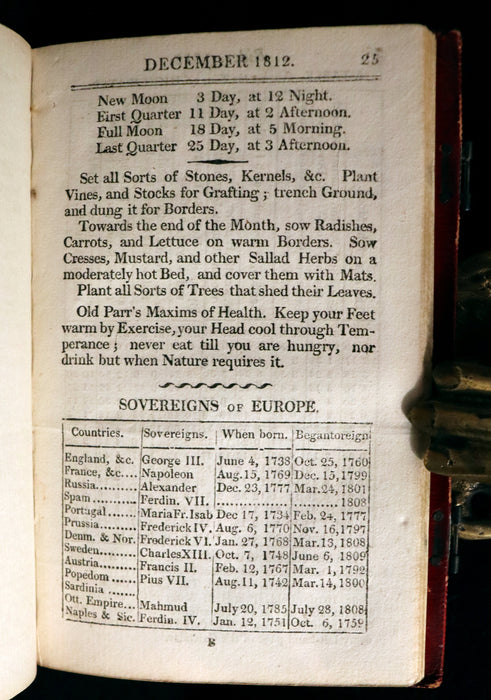 DECEMBER 1812. 25
New Moon 3 Day, at 12 Night.
First Quarter 11 Day, at 2 Afternoon.
Full Moon 18 Day, at 5 Morning.
Last Quarter 25 Day, at 3 Afternoon.
Set all Sorts of Stones, Kernels, &c. Plant
Vines, and Stocks for Grafting; trench Ground,
and dung it for Borders.
Towards the end of the Month, sow Radishes,
Carrots, and Lettuce on warm Borders. Sow
Cresses, Mustard, and other Sallad Herbs on a
moderately hot Bed, and cover them with Mats.
Plant all Sorts of Trees that shed their Leaves.
Old Parr's Maxims of Health. Keep your Feet
warm by Exercise, your Head cool through Tem-
perance; never eat till you are hungry, nor
drink but when Nature requires it.
SOVEREIGNS OF EUROPE.
Countries. Sovereigns. When born. Began to reign
England, &c. George III. June 4, 1738 Oct. 25, 1760
France, &c.... Napoleon Aug. 15, 1769 Dec. 15, 1799
Russia......... Alexander Dec. 23, 1777 Mar. 24, 1801
Spain .......... Ferdin. VII. ................ ......... 1808
Portugal ...... Maria Fr. Isab Dec 17, 1734 Feb. 24, 1777
Prussia......... Frederick IV. Aug. 6, 1770 Nov. 16, 1797
Denm. & Nor. Frederick VI. Jan. 27, 1768 Mar. 13, 1808
Sweden........ Charles XIII. Oct. 7, 1748 June 6, 1809
Austria......... Francis II. Feb. 12, 1767 Mar. 1, 1792
Popedom ...... Pius VII. Aug. 11, 1742 Mar. 14, 1800
Sardinia ......
Ott. Empire... Mahmud July 20, 1785 July 28, 1808
Naples & Sic. Ferdin. IV. Jan. 12, 1751 Oct. 6, 1759
B